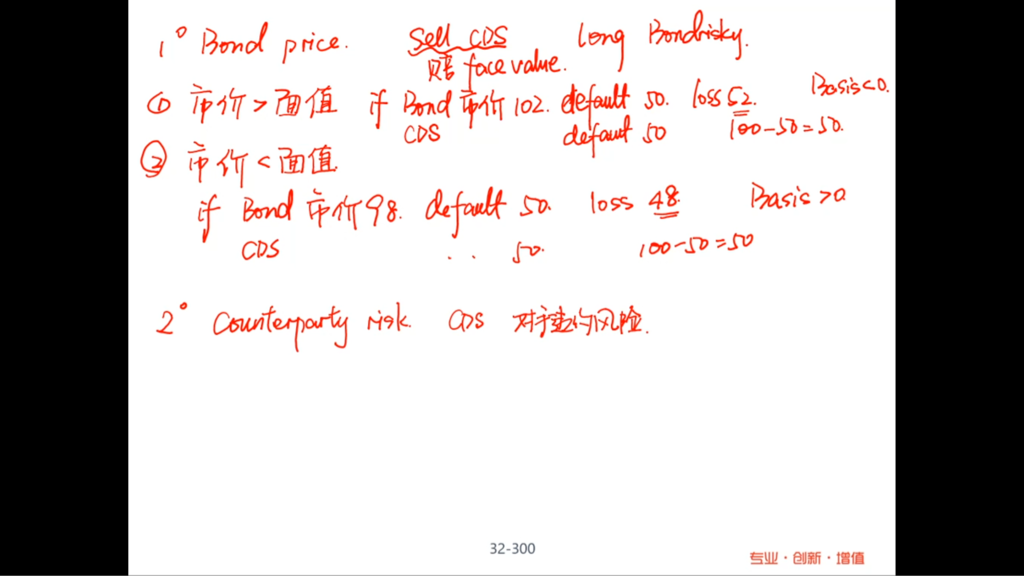 1° Bond price. Sell CDS long Bondrisky.
赔 face value.
① 市价>面值 if Bond 市价102. default 50. loss 52. Basis<0.
CDS default 50 100-50=50.
② 市价<面值
if Bond 市价98. default 50. loss 48. Basis>0
CDS .. 50. 100-50=50
2° Counterparty risk. CDS 对手的风险.
32-300
专业·创新·增值